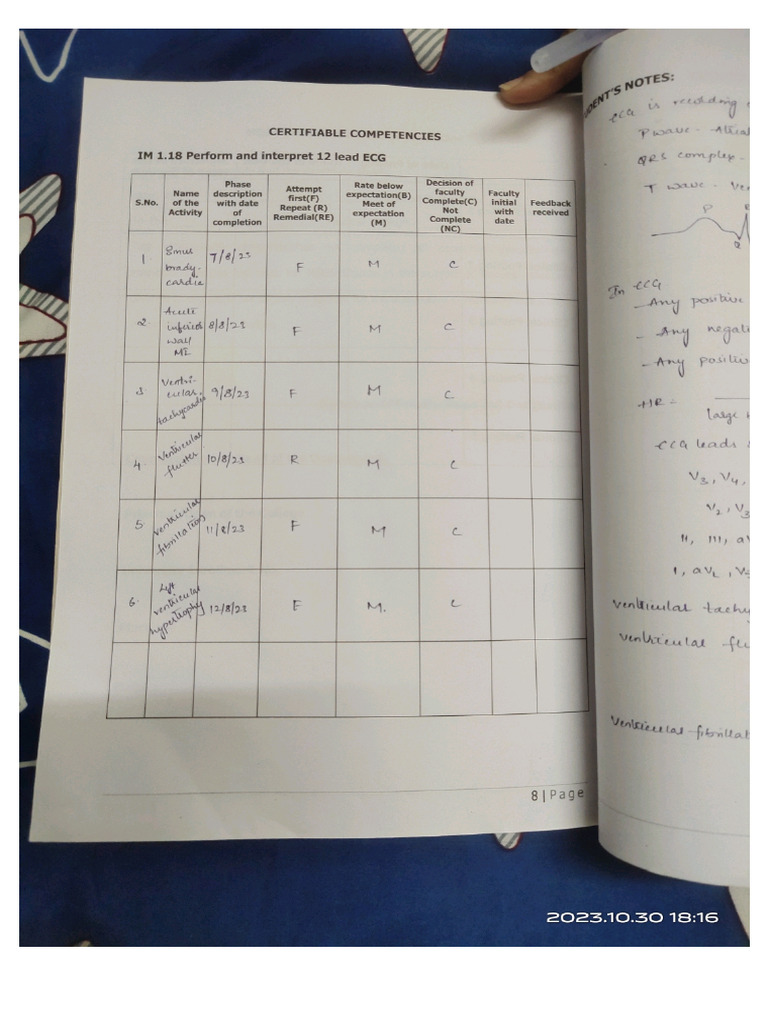 CERTIFIABLE COMPETENCIES
IM 1.18 Perform and interpret 12 lead ECG
S.No.
Name
of the
Activity
Phase
description
with date
of
completion
Attempt
first(F)
Repeat (R)
Remedial(RE)
Rate below
expectation(B)
Meet of
expectation
(M)
Decision of
faculty
Complete(C)
Not
Complete
(NC)
Faculty
initial
with
date
Feedback
received
1
brady-
cardia
7/8/23
F
M
C
2.
Acute
wall
MI
8/8/23
F
M
C
3
Ventri-
cular
tachycardia
9/8/23
F
M
C
4.
Ventricular
flutter
10/8/23
R
M
C
5.
Ventricular
fibrillation
11/8/23
F
M
C
6.
Left
ventricular
hypertrophy
12/8/23
F
M.
C
8 | Page
DENT'S NOTES:
ECG is recording
P wave -
QRS complex -
T wave -
P
Q
In ECG
- Any positive
- Any
- Any
HR =
large
ECG leads
V3, V4,
V2,
II, III,
I, aVL,
ventricular
ventricular
Ventricular
2023.10.30 18:16